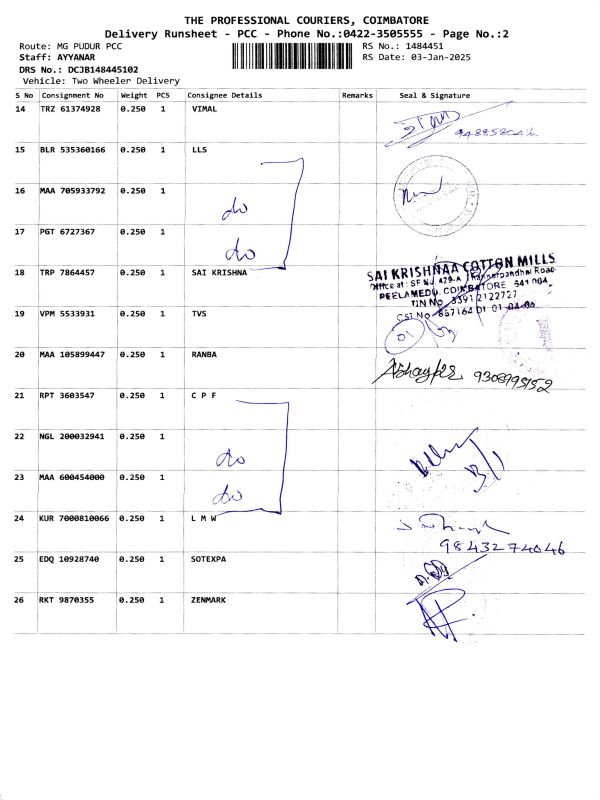 THE PROFESSIONAL COURIERS, COIMBATORE
Delivery Runsheet - PCC - Phone No.:0422-3505555 - Page No.:2
Route: MG PUDUR PCC RS No.: 1484451
Staff: AYYANAR RS Date: 03-Jan-2025
DRS No.: DCJB148445102
Vehicle: Two Wheeler Delivery
S No Consignment No Weight PCS Consignee Details Remarks Seal & Signature
14 TRZ 61374928 0.250 1 VIMAL
15 BLR 535360166 0.250 1 LLS
16 MAA 705933792 0.250 1 do
17 PGT 6727367 0.250 1 do
18 TRP 7864457 0.250 1 SAI KRISHNA
SAI KRISHNAA COTTON MILLS
Office at: SF No. 429-A
PEELAMEDU, COIMBATORE 641 004
TIN No. 33912122727
19 VPM 5533931 0.250 1 TVS 01
20 MAA 105899447 0.250 1 RANBA
21 RPT 3603547 0.250 1 C P F
22 NGL 200032941 0.250 1 do
23 MAA 600454000 0.250 1 do
24 KUR 7000810066 0.250 1 L M W 9843274046
25 EDQ 10928740 0.250 1 SOTEXPA
26 RKT 9870355 0.250 1 ZENMARK